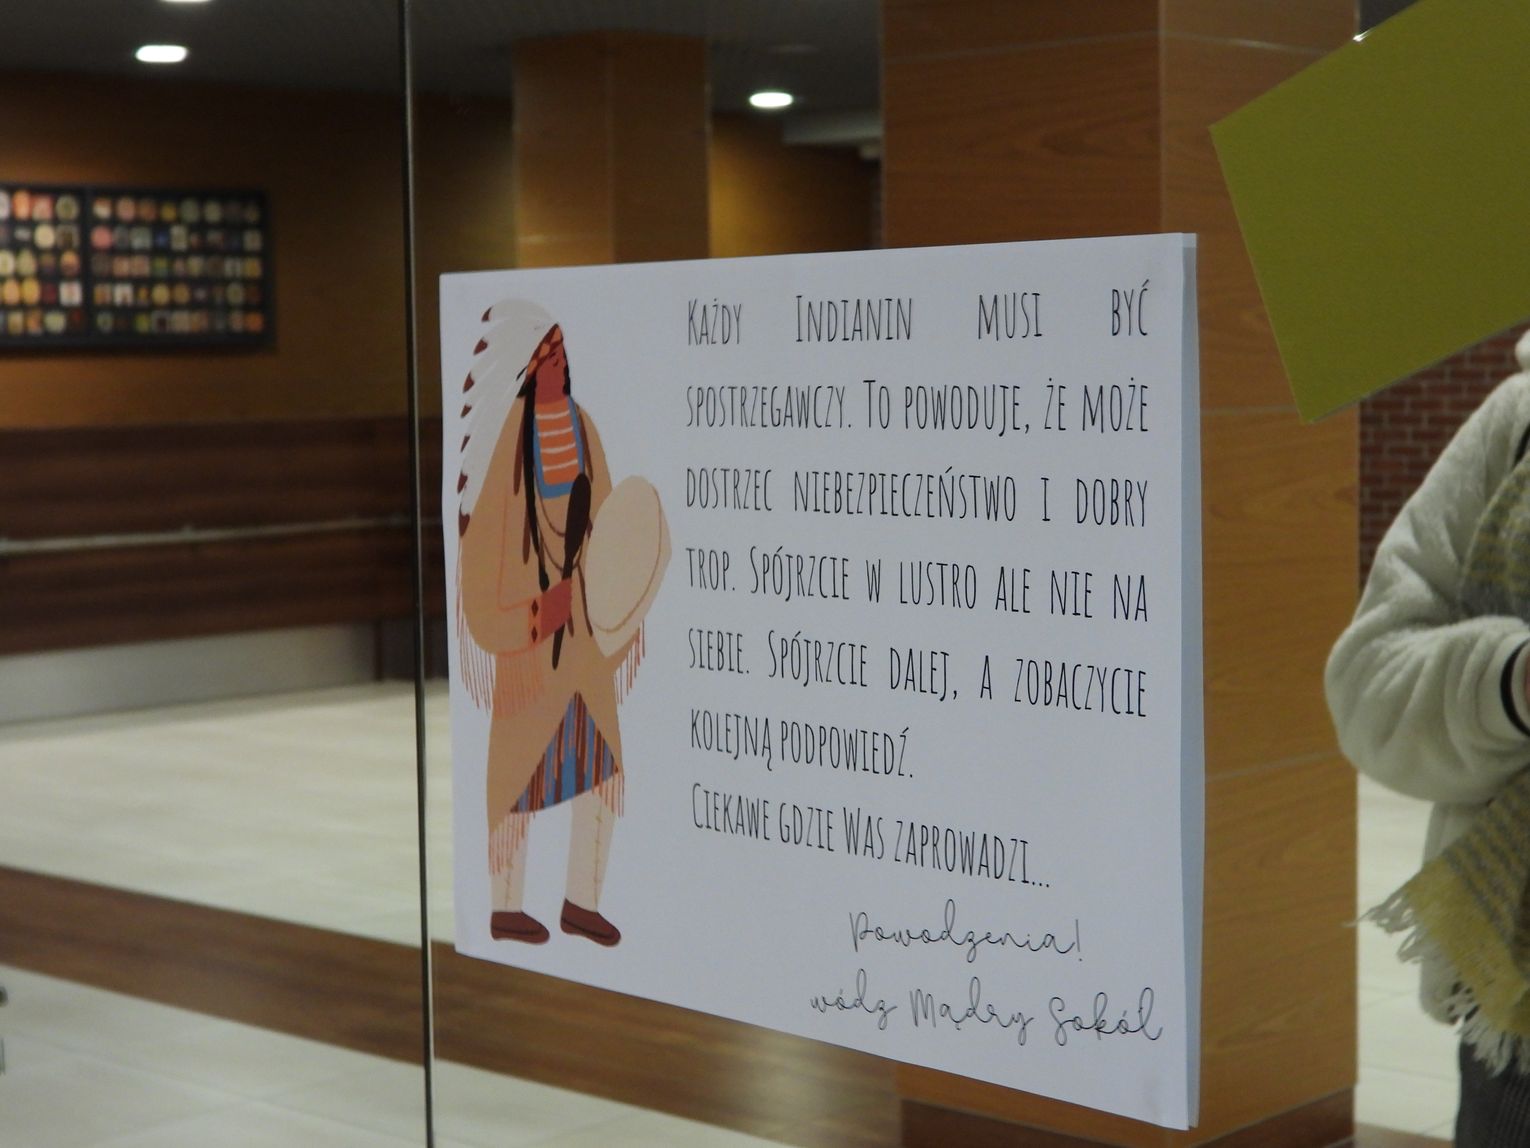 Każdy Indianin musi być
spostrzegawczy. To powoduje, że może
dostrzec niebezpieczeństwo i dobry
trop. Spójrzcie w lustro ale nie na
siebie. Spójrzcie dalej, a zobaczycie
kolejną podpowiedź.
Ciekawe gdzie Was zaprowadzi...
Powodzenia!
wódz Mądry Sokół